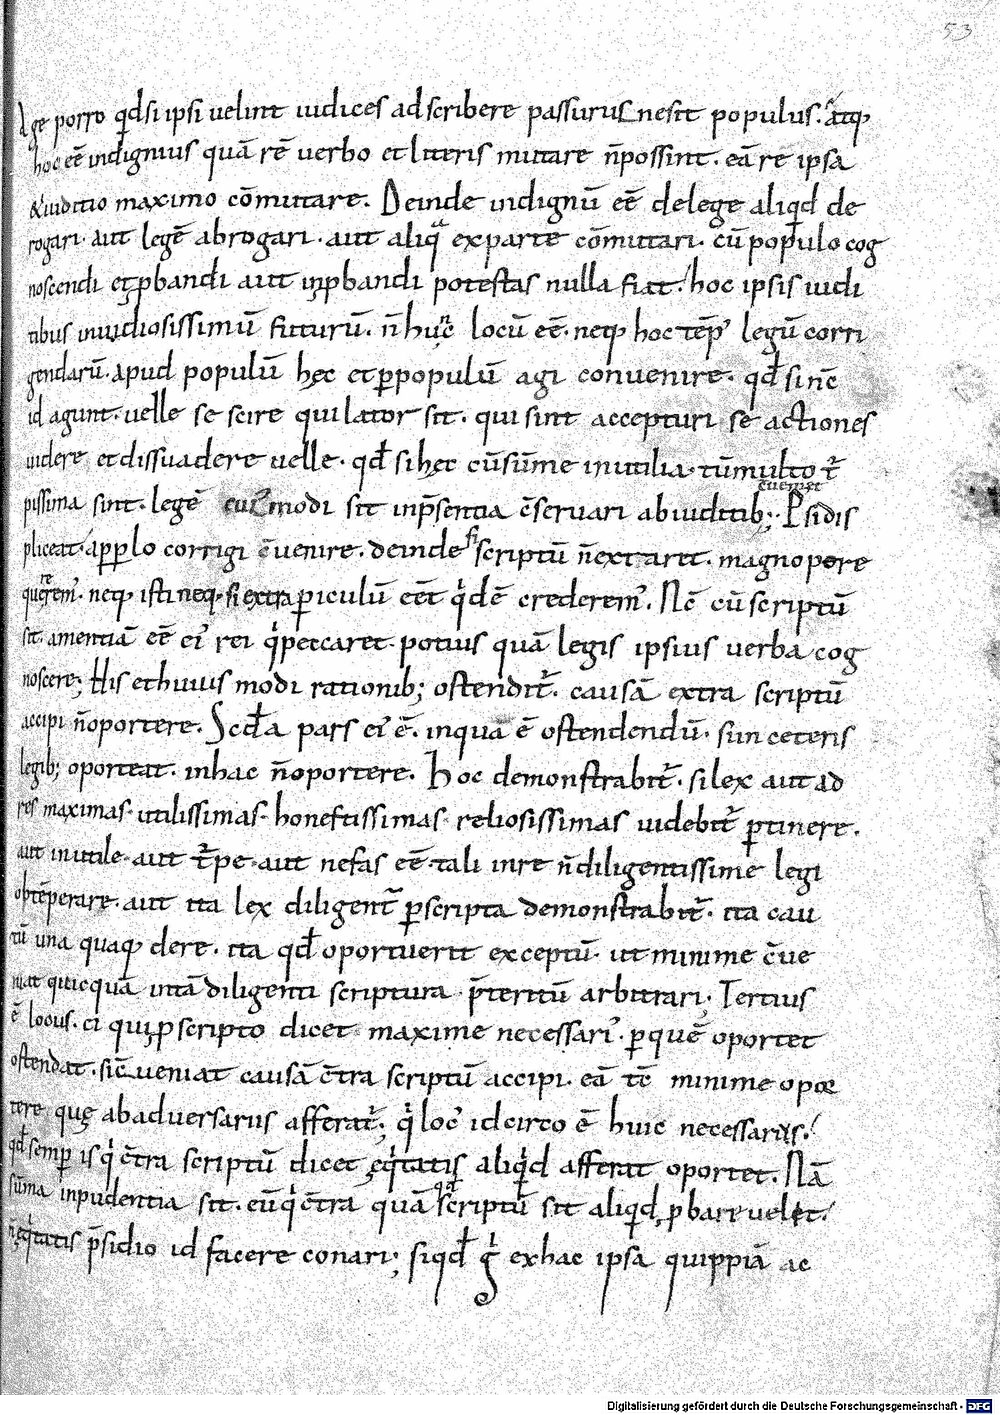 53
Age porro qđsi ipsi uelint iudices adscribere passurus nesit populus. atq;
hoc eē indignius quā rē uerbo et literis mutare n̄possint. eā re ipsa
&iuditio maximo cōmutare. Deinde indignū eē delege aliqid de
rogari. aut legē abrogari. aut aliqᵃ exparte cōmutari. cū populo cog
noscendi et ꝓbandi aut inꝓbandi potestas nulla fiat. hoc ipsis iudi
tibus inuidiosissimū futurū. n̄ hunc locū eē. neq; hoc tēp᾽ legū corri
gendarū. apud populū hęc et ꝑpopulū agi conuenire. qđ si nc̄
id agunt. uelle se scire qui lator sit. qui sint accepturi se actiones
uidere et dissuadere uelle. qđ si hęc cūsūme inutilia. tū multo t̄r
pissima sint. legē cui᾽modi sit inp̄sentia c̄seruari abiuditib; Psidis
c̄ueniet
pliceat. apꝑlo corrigi c̄uenire. deinde si scriptū n̄extaret. magnopere
quęrerem᾽. neq; isti neq; si extra ꝑiculū eēt qͥdē crederem᾽. Nc̄ cū scriptū
sit. amentiā eē ei᾽ rei qͥ peccaret. potius quā legis ipsius uerba cog
noscere; His et huius modi rationib; ostendit̄. causā extra scriptū
accipi n̄oportere. Scđa pars ei᾽ ē. inqua ē ostendendū. si in ceteris
legib; oporteat. inhac n̄oportere. Hoc demonstrabit̄. silex aut ad
res maximas. utilissimas. honestissimas. reliosissimas uidebit̄ ꝑtinere.
aut inutile. aut t̄pe. aut nefas eē. tali inre n̄diligentissime legi
obtēperare. aut ita lex diligent̄ ꝑscripta demonstrabit̄. ita cau
tū una quaq; dere. ita qđ oportuerit exceptū. ut minime c̄ue
niat quicquā intā diligenti scriptura p̄teritū arbitrari. Tertius
ē locus. ei qui ꝓscripto dicet maxime necessari᾽. ꝑquē oportet
ostendat. si c̄ueniat causā c̄tra scriptū accipi. eā tē minime opor
tere quę abaduersariis afferat̄. qͥ loc᾽ idcirco ē huic necessarius.
qđ semꝑ is qͥ c̄tra scriptū dicet ęqͥtatis aliqͥd afferat oportet. Nā
sūma inpudentia sit. eūqͥ c̄tra quā scriptū sit aliqid ꝓbare uelit.
n̄ ęqͥtatis p̄sidio id facere conari; siqđ gͥ exhac ipsa quippiā ac
Digitalisierung gefördert durch die Deutsche Forschungsgemeinschaft - DFG